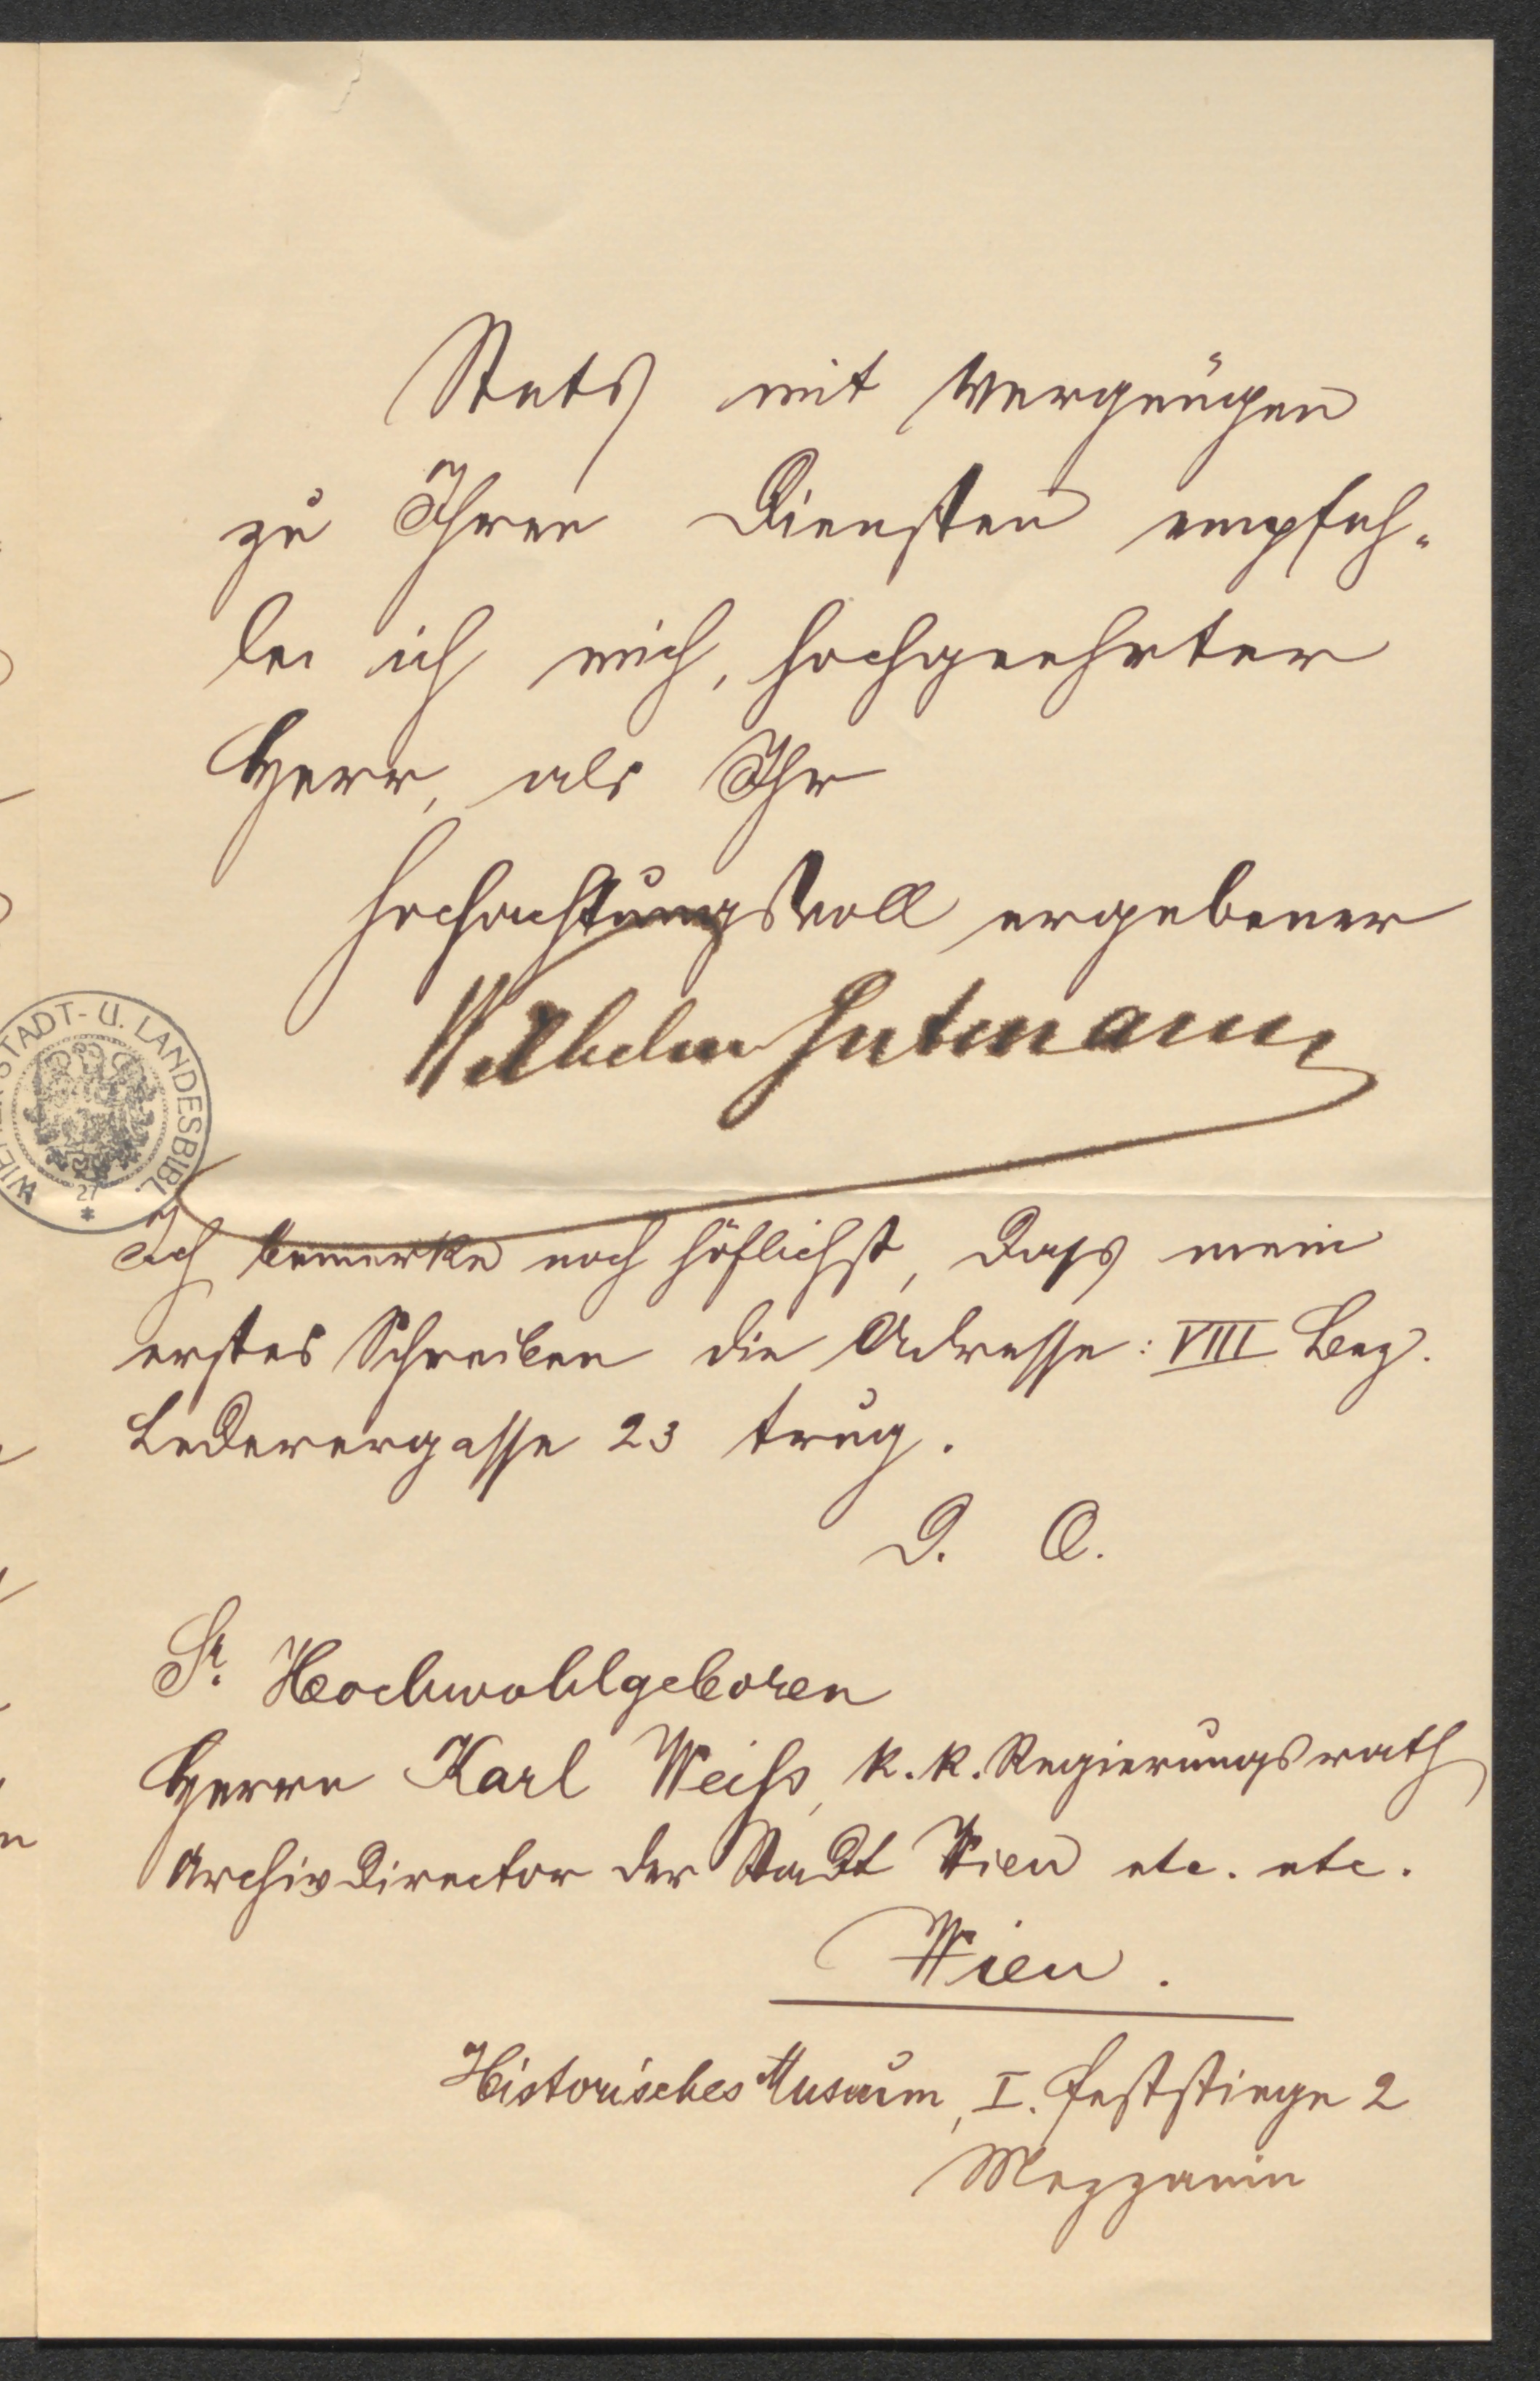 Stets mit Vergnügen
zu Ihren Diensten empfeh-
le ich mich, hochgeehrter
Herr, als Ihr
hochachtungsvoll ergebener
Wilhelm Gutmann
WIENER STADT- U. LANDESBIBL.
27
*
Ich bemerke noch höflichst, dass mein
erstes Schreiben die Adresse: VIII Bez.
Lederergasse 23 trug.
D. O.
Sr. Hochwohlgeboren
Herrn Karl Weiss, k. k. Regierungsrath
Archivdirector der Stadt Wien etc. etc.
Wien.
Historisches Museum, I. Feststiege 2
Mezzanin